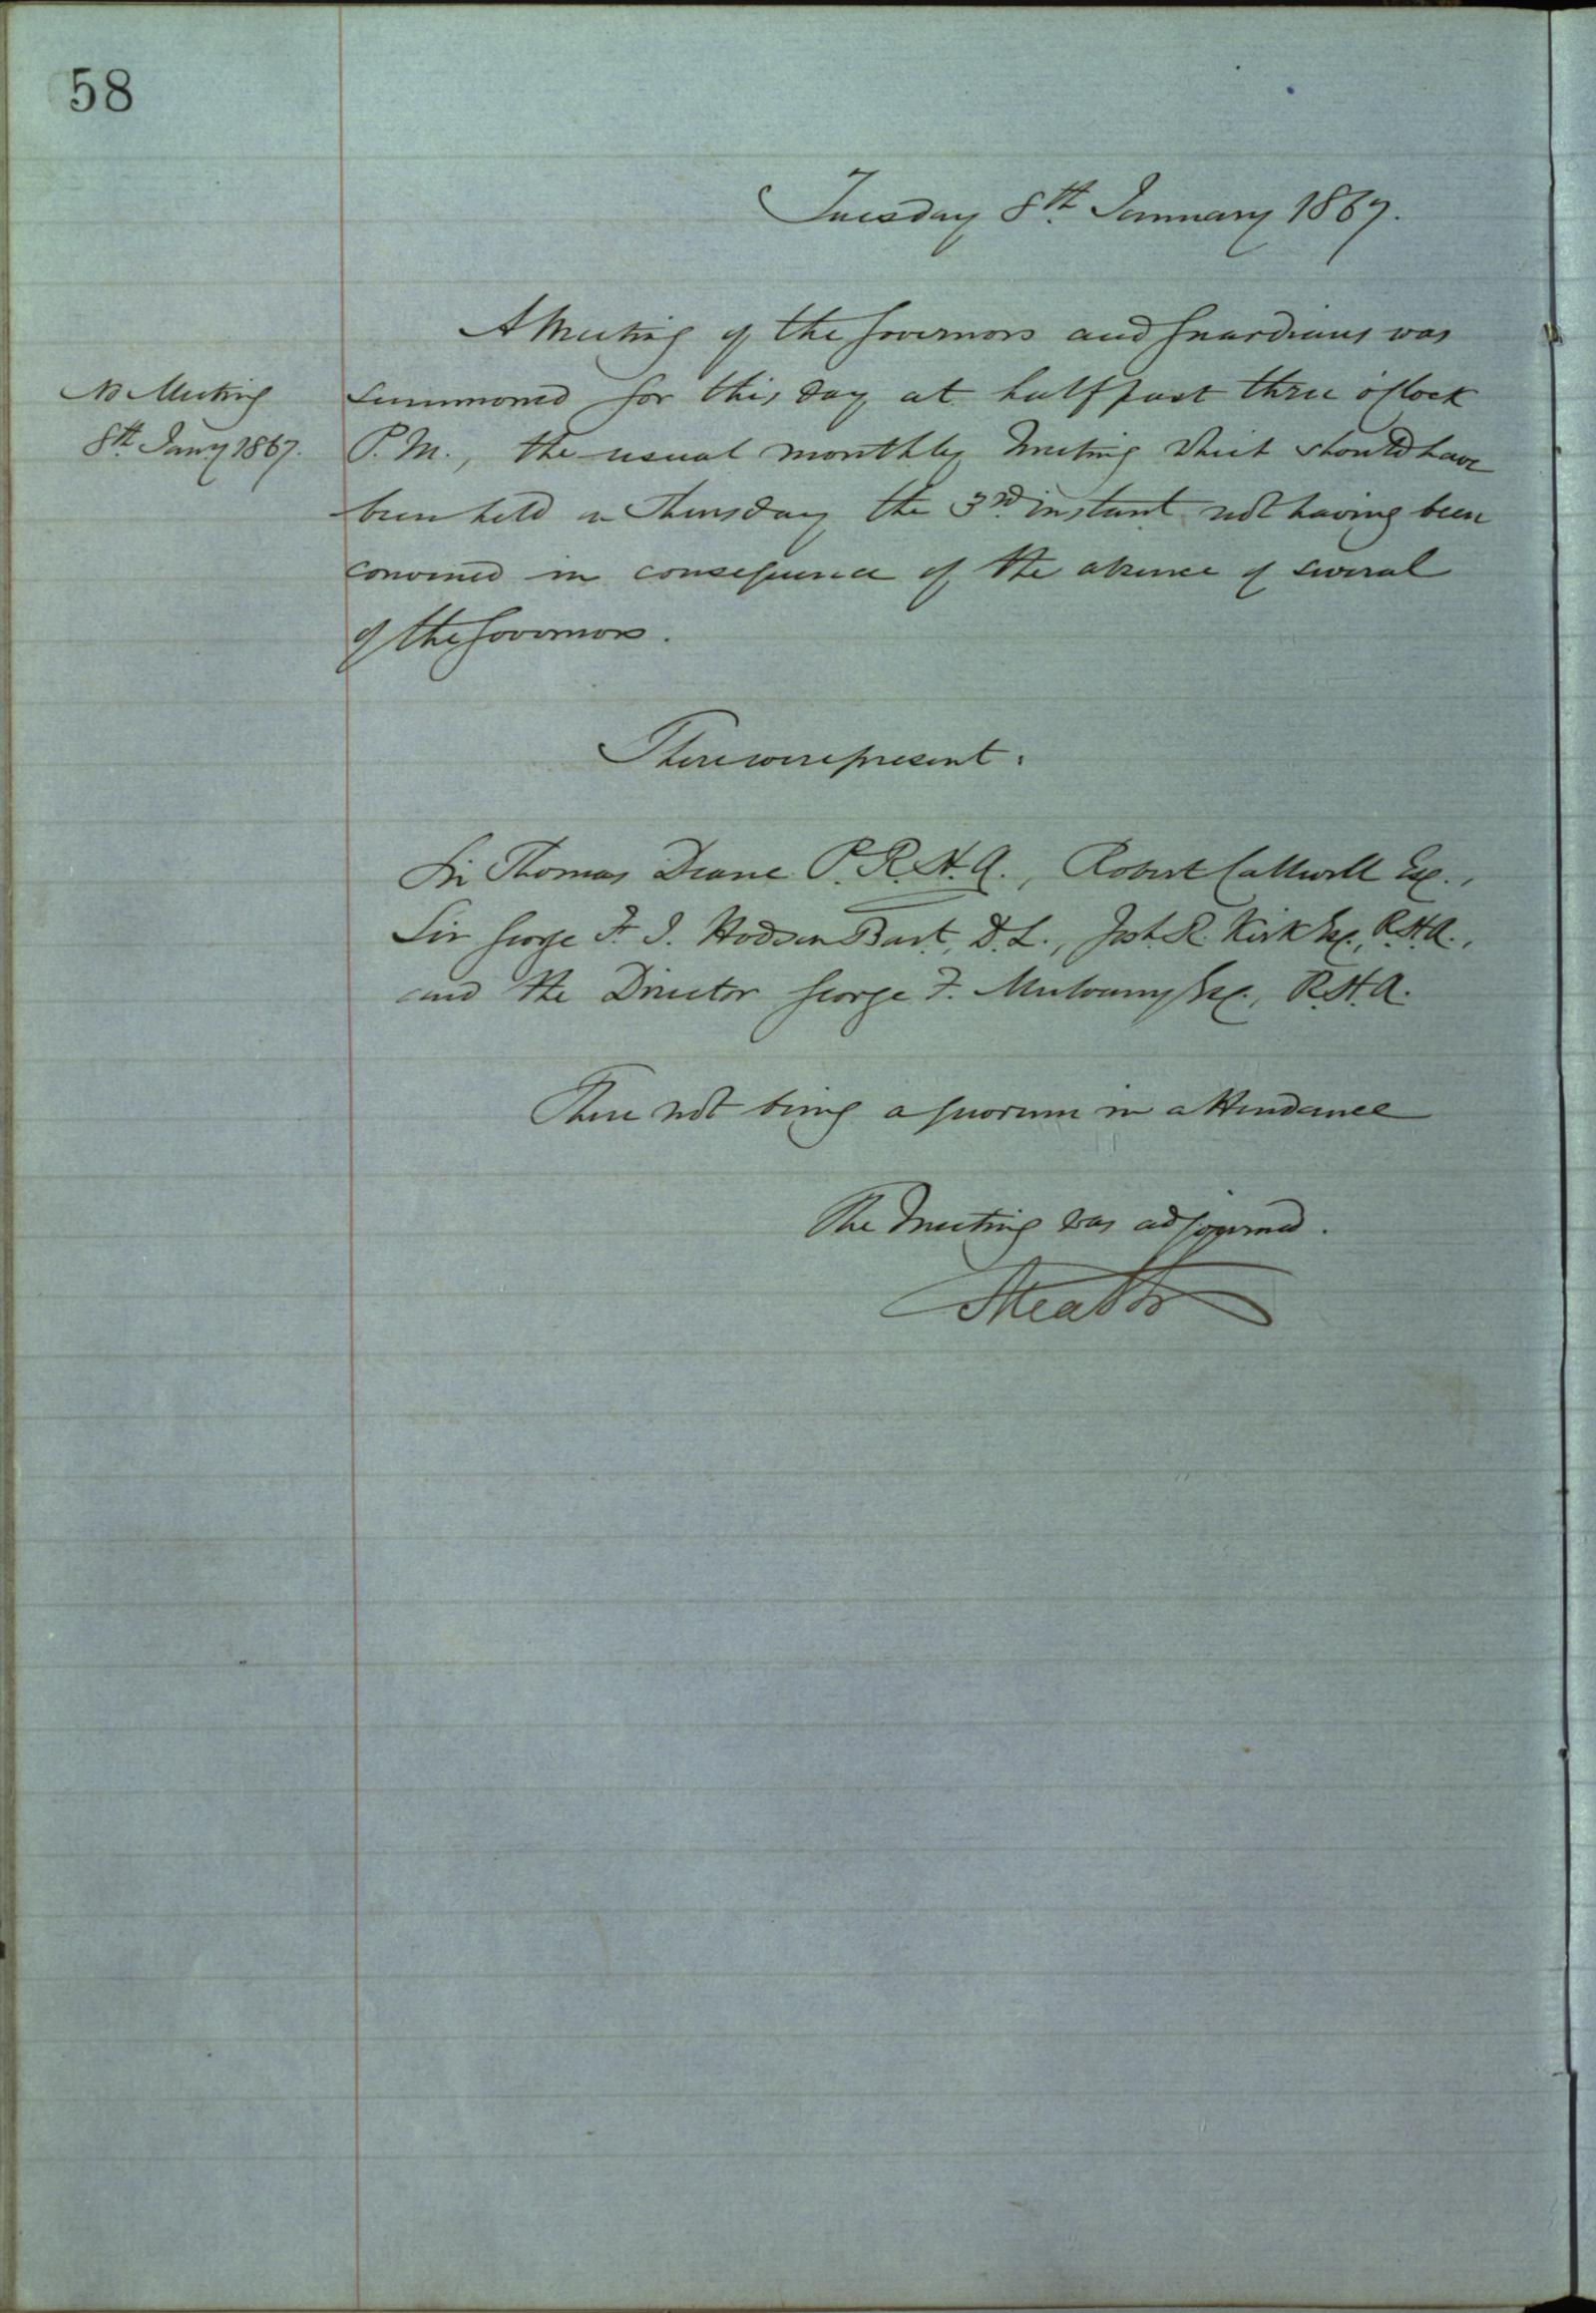 58
Tuesday 8th. January 1867.
A Meeting of the Governors and Guardians was
No Meeting
8th Jany 1867.
summoned for this day at half past three o'Clock
P.M., the usual monthly Meeting which should have
been held on Thursday the 3rd. instant not having been
convened in consequence of the absence of several
of the Governors.
There were present:
Sir Thomas Deane P.R.H.A., Robert Callwell Esq.,
Sir George F. J. Hodson Bart., D.L., Josh. R. Kirk Esq., R.H.A.,
and the Director George F. Mulvany Esq., R.H.A.
There not being a quorum in attendance
The Meeting was adjourned.